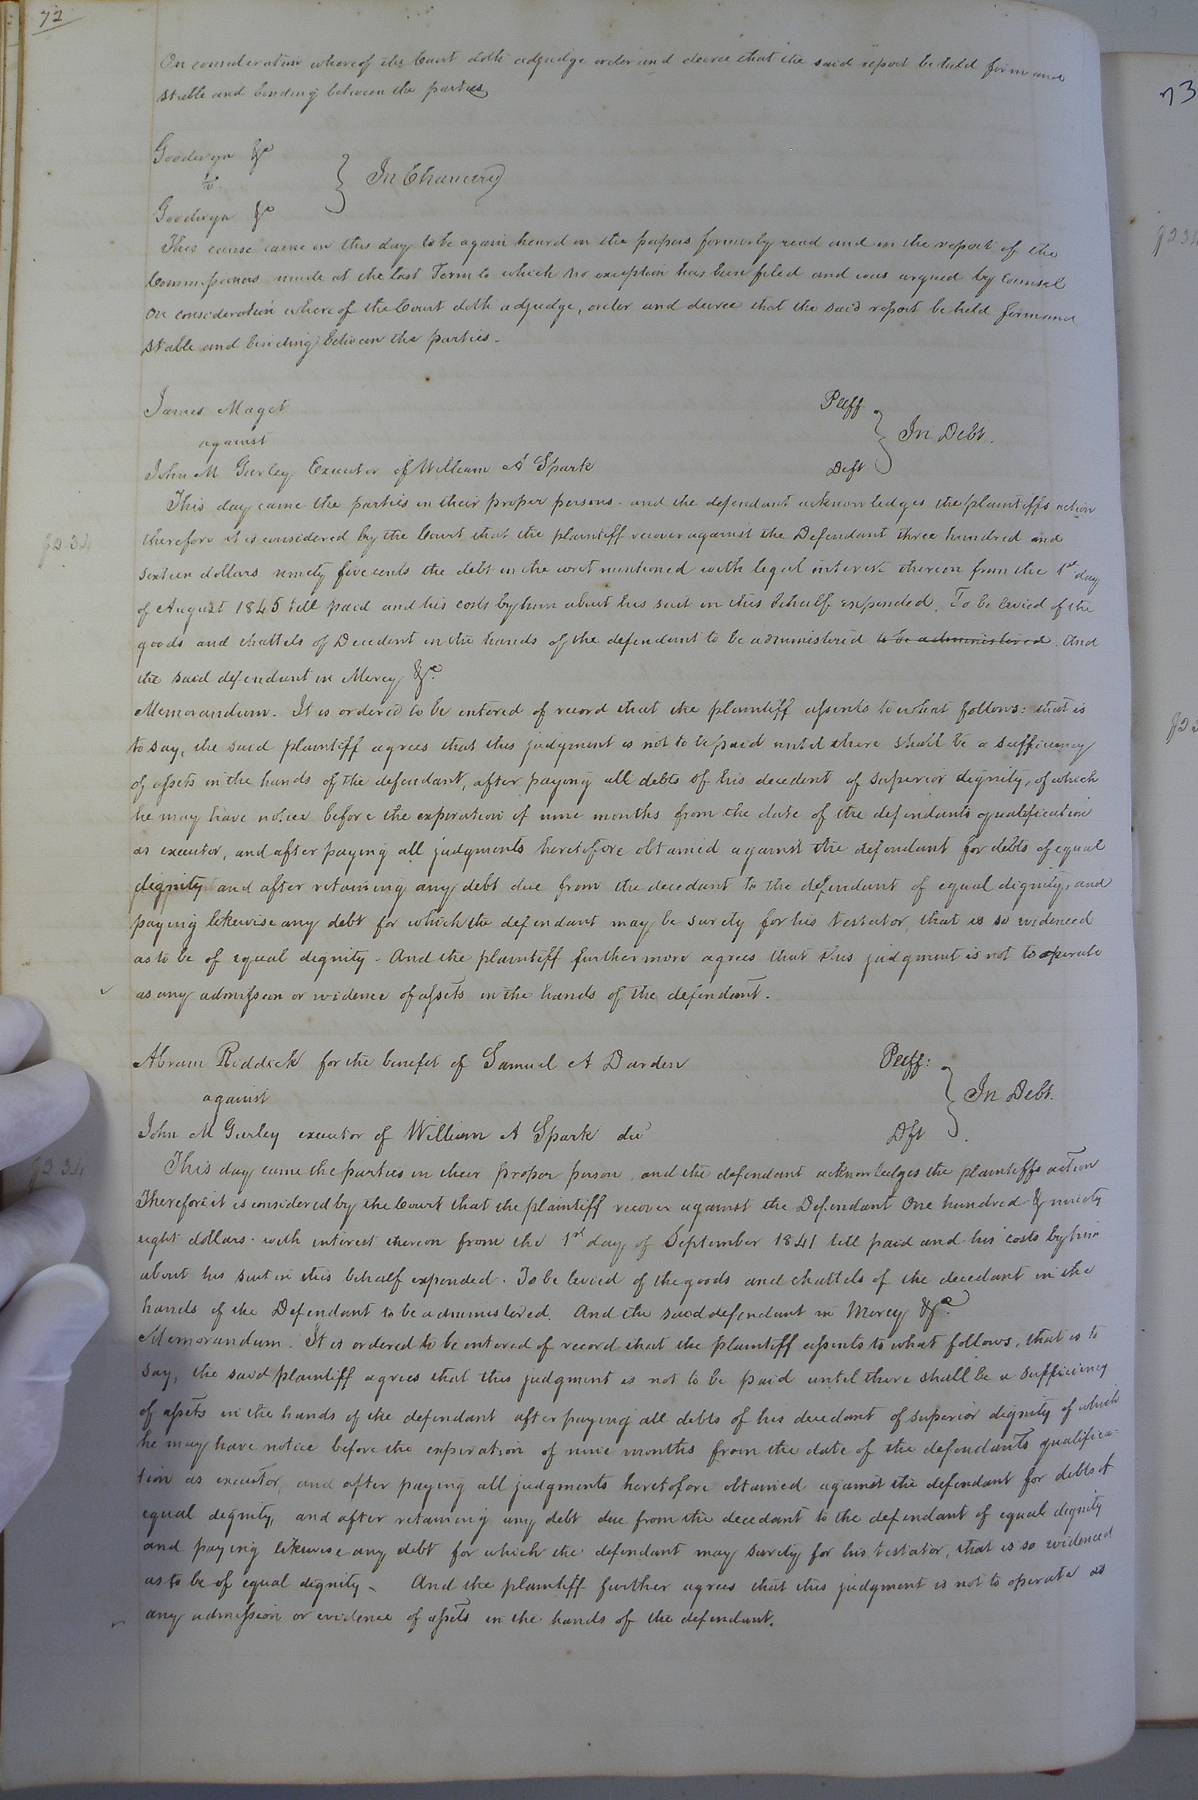 72
On consideration whereof the Court doth adjudge order and decree that the said report be held firm and
stable and binding between the parties
Goodwyn &c
vs
Goodwyn &c
} In Chancery
This cause came on this day to be again heard on the papers formerly read and on the report of the
Commissioners made at the last Term to which no exception has been filed and was argued by Counsel
On consideration whereof the Court doth adjudge, order and decree that the said report be held firm and
stable and binding between the parties.
James Maget Plff
against } In Debt.
John M Gurley Executor of William A Spark Deft
This day came the parties in their proper persons and the defendant acknowledges the plaintiffs action
therefore it is considered by the Court that the plaintiff recover against the Defendant three hundred and
J234
sixteen dollars ninety five cents the debt in the writ mentioned with legal interest thereon from the 1st day
of August 1845 till paid and his costs by him about his suit in this behalf expended. To be levied of the
goods and chattels of Decedent in the hands of the defendant to be administered to be administered. And
the said defendant in Mercy &c.
Memorandum. It is ordered to be entered of record that the plaintiff assents to what follows: that is
to say, the said plaintiff agrees that this judgment is not to be paid until there shall be a sufficiency
of assets in the hands of the defendant, after paying all debts of his decedent of superior dignity, of which
he may have notice before the expiration of nine months from the date of the defendants qualification
as executor, and after paying all judgments heretofore obtained against the defendant for debts of equal
dignity and after retaining any debt due from the decedant to the defendant of equal dignity, and
paying likewise any debt for which the defendant may be surety for his testator, that is so evidenced
as to be of equal dignity - And the plaintiff further more agrees that this judgment is not to operate
as any admission or evidence of assets in the hands of the defendant.
Abram Riddick for the benefit of Samuel A Darden Plff:
against } In Debt.
John M Gurley executor of William A Spark dec Dft
J234
This day came the parties in their proper person, and the defendant acknowledges the plaintiffs action
Therefore it is considered by the Court that the plaintiff recover against the Defendant One hundred & ninety
eight dollars. with interest thereon from the 1st day of September 1841 till paid and his costs by him
about his suit in this behalf expended. To be levied of the goods and chattels of the decedant in the
hands of the Defendant to be administered. And the said defendant in Mercy &c.
Memorandum. It is ordered to be entered of record that the plaintiff assents to what follows, that is to
say, the said plaintiff agrees that this judgment is not to be paid until there shall be a sufficiency
of assets in the hands of the defendant after paying all debts of his decedant of superior dignity of which
he may have notice before the expiration of nine months from the date of the defendants qualifica-
tion as executor, and after paying all judgments heretofore obtained against the defendant for debts of
equal dignity, and after retaining any debt due from the decedant to the defendant of equal dignity
and paying likewise any debt for which the defendant may surety for his testator, that is so evidenced
as to be of equal dignity - And the plaintiff further agrees that this judgment is not to operate as
any admission or evidence of assets in the hands of the defendant.
73